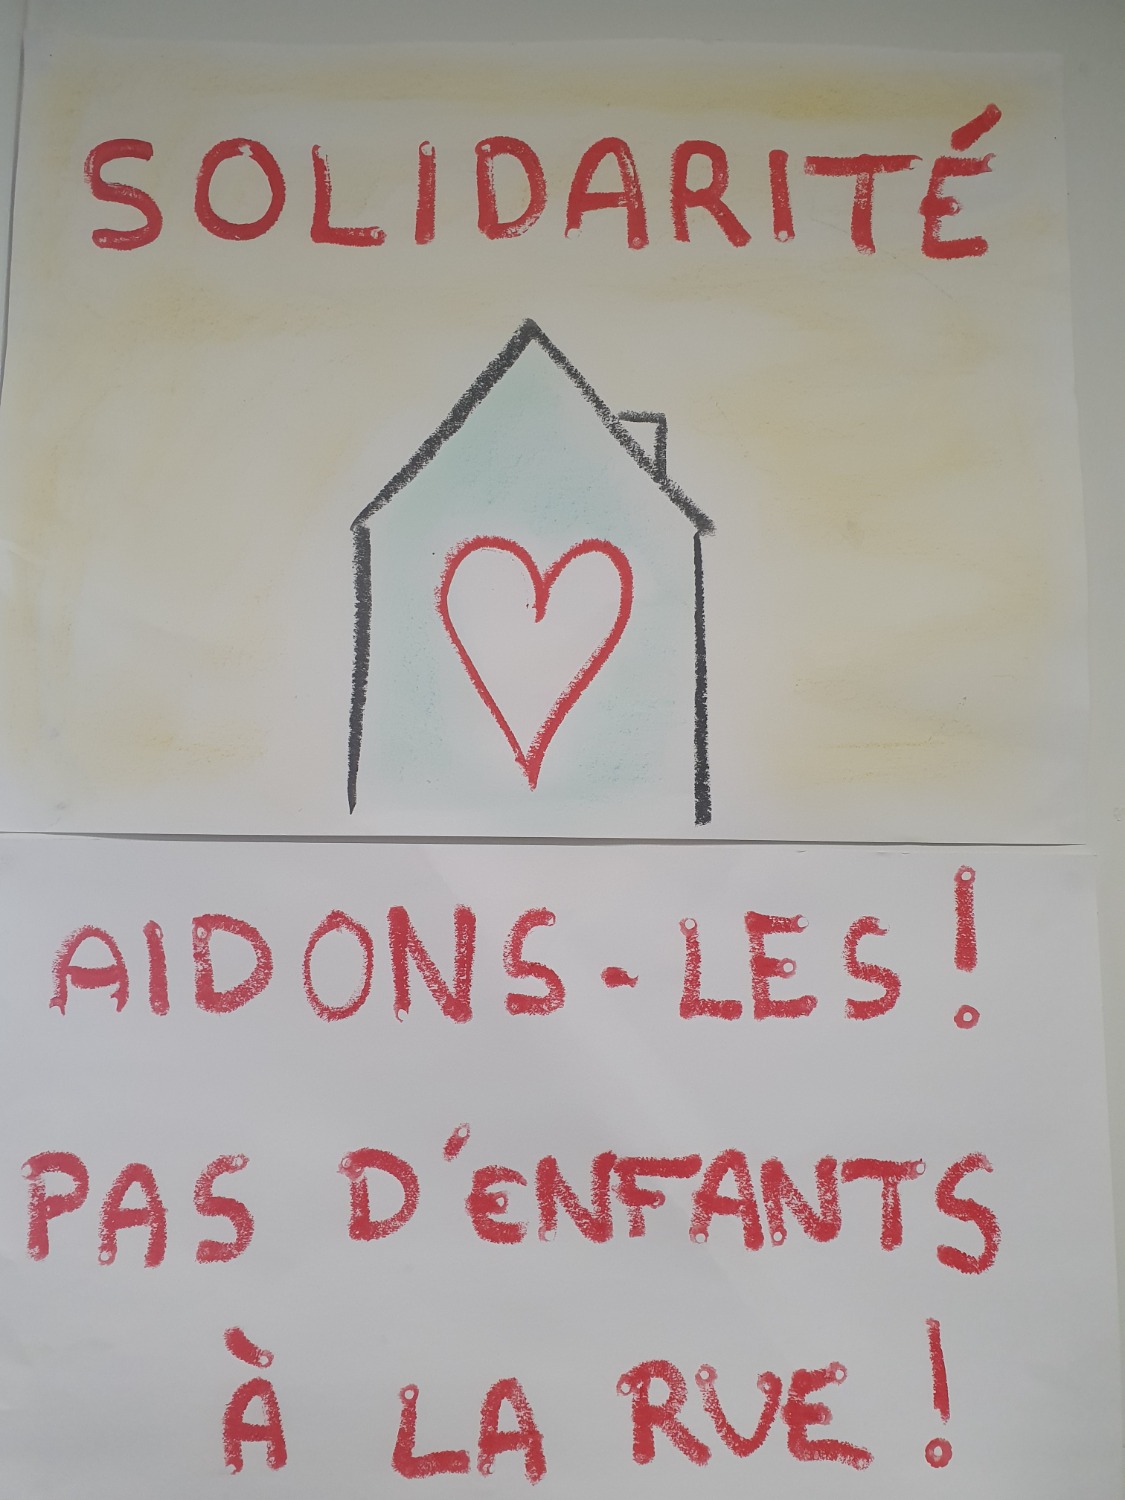 SOLIDARITÉ
AIDONS-LES !
PAS D'ENFANTS
À LA RUE !